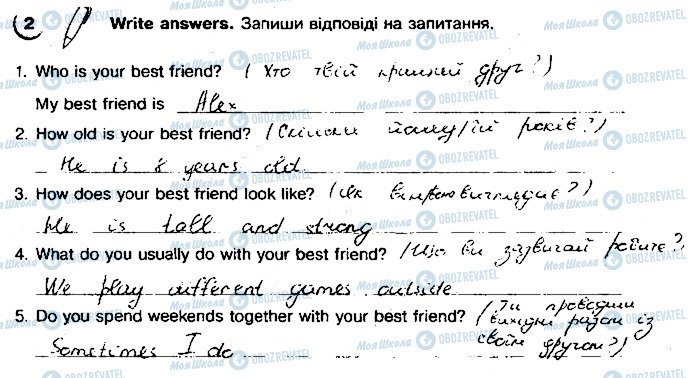 2 Write answers. Запиши відповіді на запитання.
1. Who is your best friend? (Хто твій кращий друг?)
My best friend is Alex
2. How old is your best friend? (Скільки йому/їй років?)
He is 8 years old
3. How does your best friend look like? (Як він/вона виглядає?)
He is tall and strong
4. What do you usually do with your best friend? (Що ви зазвичай робите?)
We play different games outside
5. Do you spend weekends together with your best friend? (Ти проводиш
вихідні разом із
Sometimes I do своїм другом?)